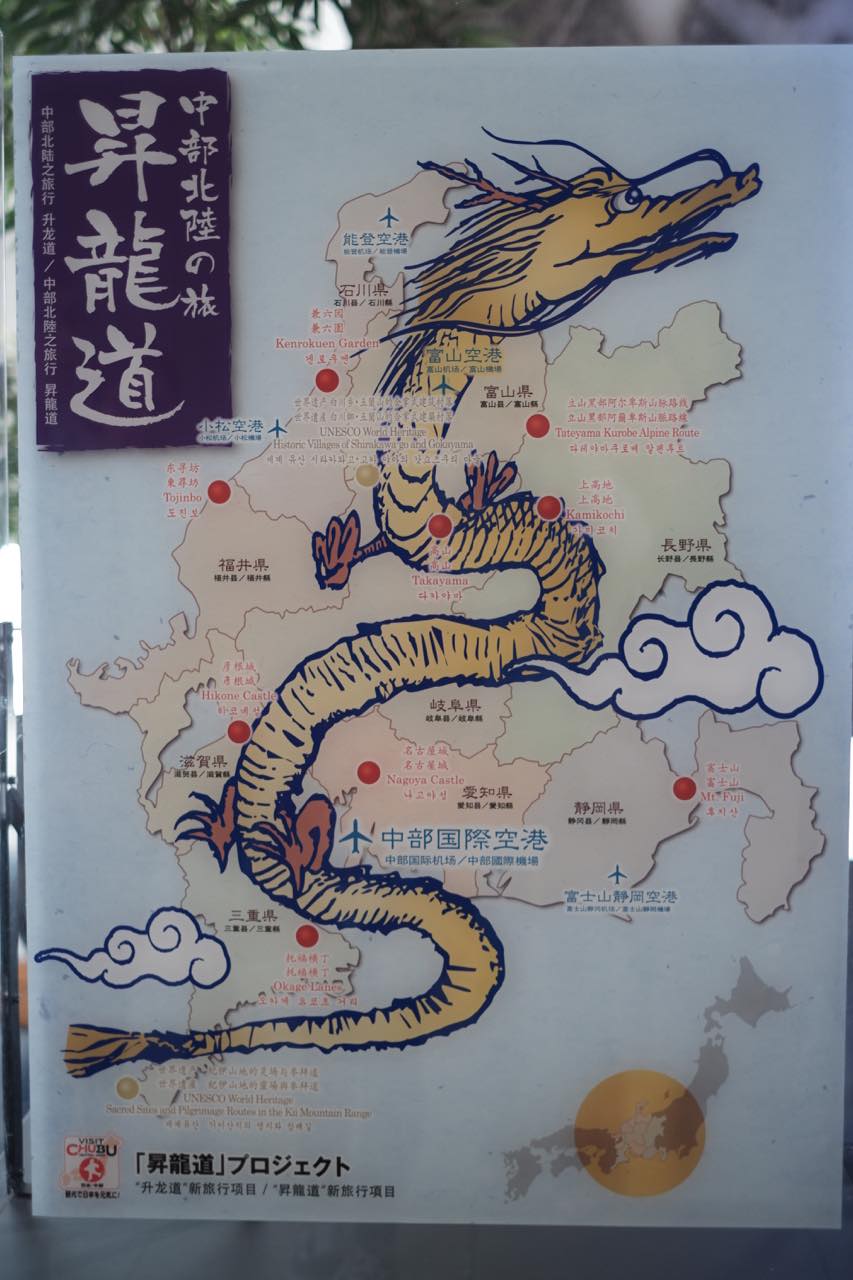 中部北陸の旅
昇龍道
中部北陆之旅行 升龙道／中部北陸之旅行 昇龍道
能登空港
能登机场／能登機場
石川県
石川县／石川縣
兼六园
兼六園
Kenrokuen Garden
겐로쿠엔
富山空港
富山机场／富山機場
富山県
富山县／富山縣
立山黑部阿尔卑斯山脉路线
立山黑部阿爾卑斯山脈路線
Tateyama Kurobe Alpine Route
다테야마구로베 알펜루트
小松空港
小松机场／小松機場
UNESCO World Heritage
Historic Villages of Shirakawa-go and Gokayama
东寻坊
東尋坊
Tojinbo
도진보
上高地
上高地
Kamikochi
가미코치
高山
高山
Takayama
다카야마
長野県
长野县／長野縣
福井県
福井县／福井縣
彦根城
彥根城
Hikone Castle
히코네성
岐阜県
岐阜县／岐阜縣
滋賀県
滋贺县／滋賀縣
名古屋城
名古屋城
Nagoya Castle
나고야성
愛知県
爱知县／愛知縣
静岡県
静冈县／靜岡縣
富士山
富士山
Mt. Fuji
후지산
中部国際空港
中部国际机场／中部國際機場
富士山静岡空港
富士山静冈机场／富士山靜岡機場
三重県
三重县／三重縣
托福横丁
托福橫丁
Okage Lanes
오카게 요코초 거리
世界遗产 纪伊山地的灵场与参拜道
世界遺產 紀伊山地的靈場與參拜道
UNESCO World Heritage
Sacred Sites and Pilgrimage Routes in the Kii Mountain Range
VISIT
CHUBU
日本・中部
観光で日本を元気に!
「昇龍道」プロジェクト
"升龙道"新旅行项目 / "昇龍道"新旅行項目